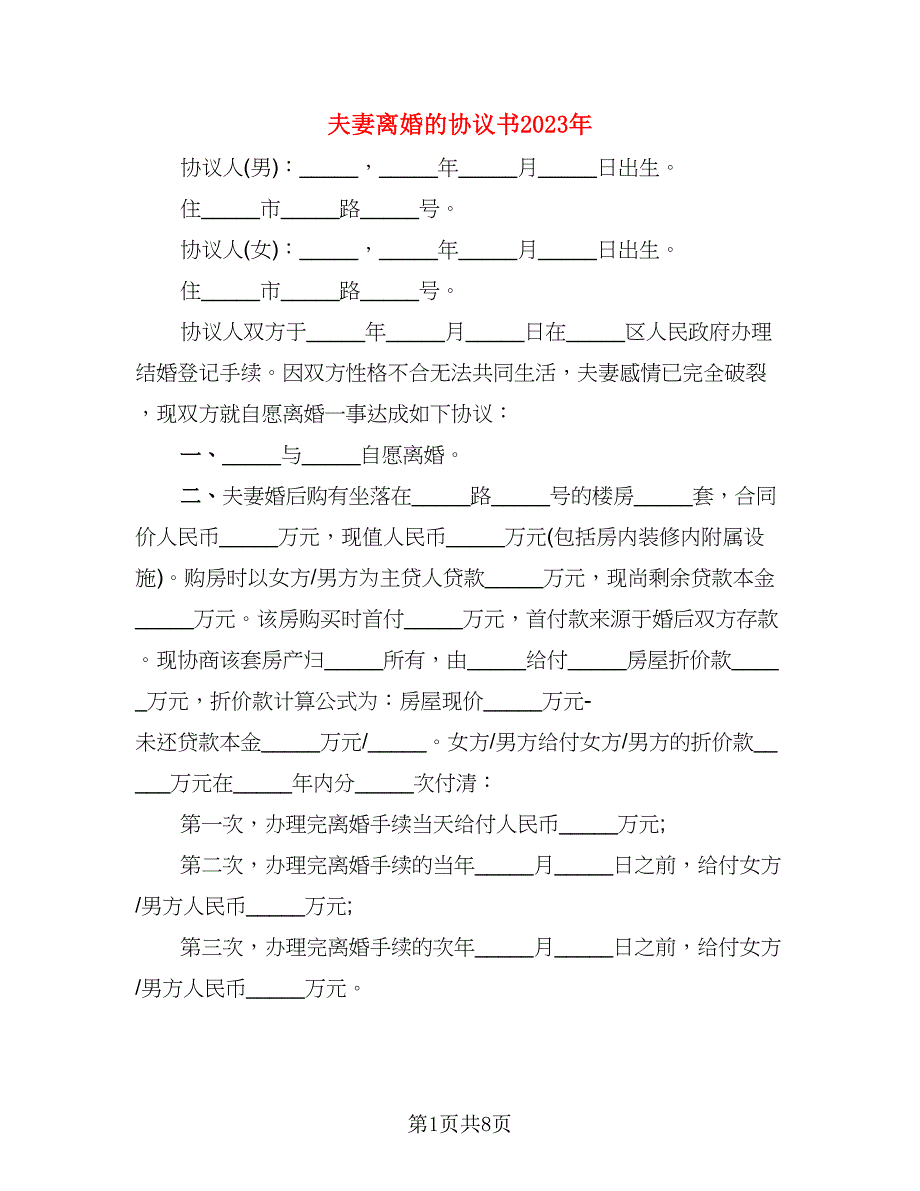 夫妻离婚的协议书2023年
协议人(男)：______，______年______月______日出生。
住______市______路______号。
协议人(女)：______，______年______月______日出生。
住______市______路______号。
协议人双方于______年______月______日在______区人民政府办理
结婚登记手续。因双方性格不合无法共同生活，夫妻感情已完全破裂
，现双方就自愿离婚一事达成如下协议：
一、______与______自愿离婚。
二、夫妻婚后购有坐落在______路______号的楼房______套，合同
价人民币______万元，现值人民币______万元(包括房内装修内附属设
施)。购房时以女方/男方为主贷人贷款______万元，现尚剩余贷款本金
______万元。该房购买时首付______万元，首付款来源于婚后双方存款
。现协商该套房产归______所有，由______给付______房屋折价款_____
_万元，折价款计算公式为：房屋现价______万元-
未还贷款本金______万元/______。女方/男方给付女方/男方的折价款__
____万元在______年内分______次付清：
第一次，办理完离婚手续当天给付人民币______万元;
第二次，办理完离婚手续的当年______月______日之前，给付女方
/男方人民币______万元;
第三次，办理完离婚手续的次年______月______日之前，给付女方
/男方人民币______万元。
第1页共8页